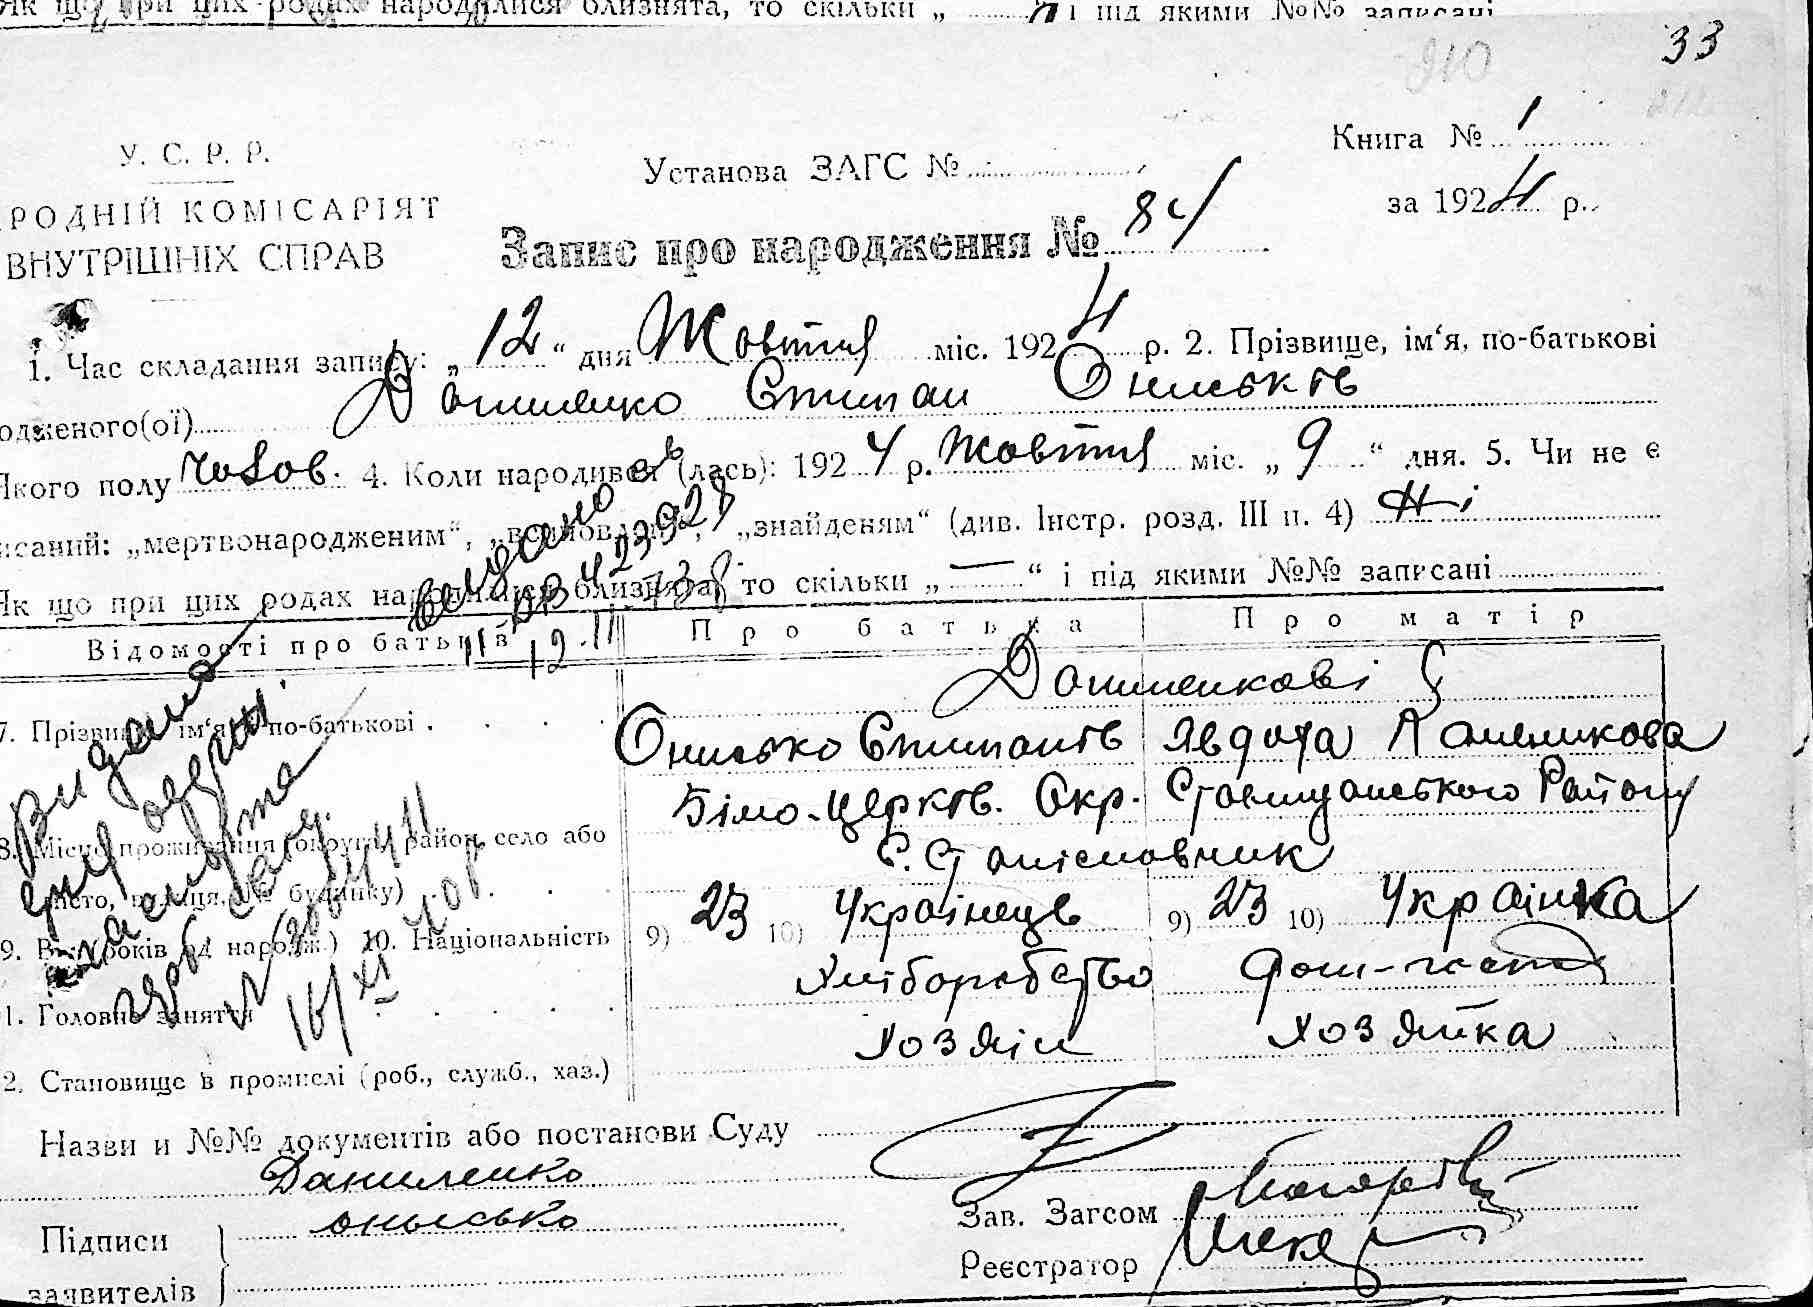 Як що при цих родах народилися близнята, то скільки „ і під якими №№ записані
33
910
У. С. Р. Р.
РОДНІЙ КОМІСАРІЯТ
ВНУТРІШНІХ СПРАВ
Установа ЗАГС №
Книга № 1
за 1924 р.
Запис про народження № 84
1. Час складання запису: „12“ дня Жовтня міс. 1924 р. 2. Прізвище, ім‘я, по-батькові
одженого(ої) Даниленко СтепанОниськів
Якого полу чолов. 4. Коли народився (лась): 1924 р. Жовтня міс. „9“ дня. 5. Чи не є
исаний: „мертвонародженим“, „всиновлен“, „знайденям“ (див. Інстр. розд. III п. 4) Ні
Як що при цих родах народилися близнята, то скільки „—“ і під якими №№ записані
Відомості про батьків
Про батька
Про матір
7. Прізвище, ім‘я, по-батькові
Даниленкові
Онисько Степанів
Явдоха
8. Місце проживання (округи, район, село або
місто, вулиця, № будинку)
Біло-Церків. Окр. Ставищанського Району
9. Вік (років од народж.) 10. Національність
9) 23 10) Українець
9) 23 10) Українка
1. Головне заняття
Хліборобство
2. Становище в промислі (роб., служб., хаз.)
Хозяін
Хозяйка
Видано
Назви и №№ документів або постанови Суду
Даниленко
Онысько
Підписи
заявителів
Зав. Загсом
Реєстратор